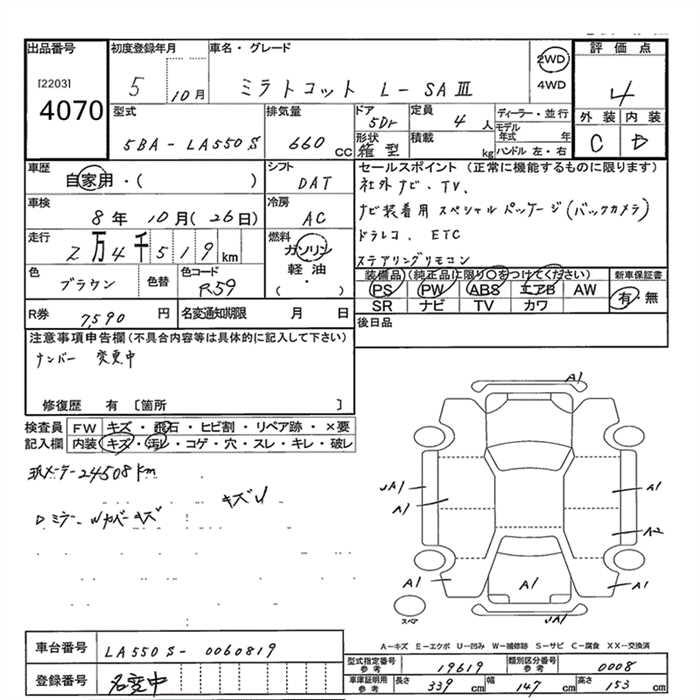 出品番号 初度登録年月 車名・グレード 評価点
[2203] 5 10月 ミラトコット L-SAⅢ 2WD 4
4070 4WD
型式 排気量 ドア 定員 ディーラー・並行 外装 内装
5BA-LA550S 660CC 5Dr 4人 モデル年式 年 C D
形状 積載 ハンドル 左・右
箱型 kg
車歴 シフト セールスポイント (正常に機能するものに限ります)
自家用・( ) DAT 社外ナビ、TV、
車検 冷房 ナビ装着用スペシャルパッケージ(バックカメラ)
8年 10月(26日) AC ドラレコ、ETC
走行 燃料 ステアリングリモコン
2万4千519km ガソリン
軽油・
( )
色 色替 色コード 装備品)(純正品に限り○をつけてください) 新車保証書
ブラウン R59 PS PW ABS エアB AW 有・無
SR ナビ TV カワ
R券 7,590円 名変通知期限 月 日 後日品
注意事項申告欄(不具合内容等は具体的に記入して下さい)
ナンバー 変更中
修復歴 有 [箇所 ]
検査員 FW キズ・飛石・ヒビ割・リペア跡・×要
記入欄 内装 キズ・汚レ・コゲ・穴・スレ・キレ・破レ
現メーター24508km
キズレ
Dミラー、Wカバーキズ
A1
UA1
A1
A1
A2
A1
A1
A1
スペア
A-キズ E-エクボ U-凹み W-補修跡 S-サビ C-腐食 XX-交換済
車台番号 LA550S-0060819
型式指定番号 参考 19619 類別区分番号 参考 0008
登録番号 名変中
車庫証明用 参考 長さ 339cm 幅 147cm 高さ 153cm